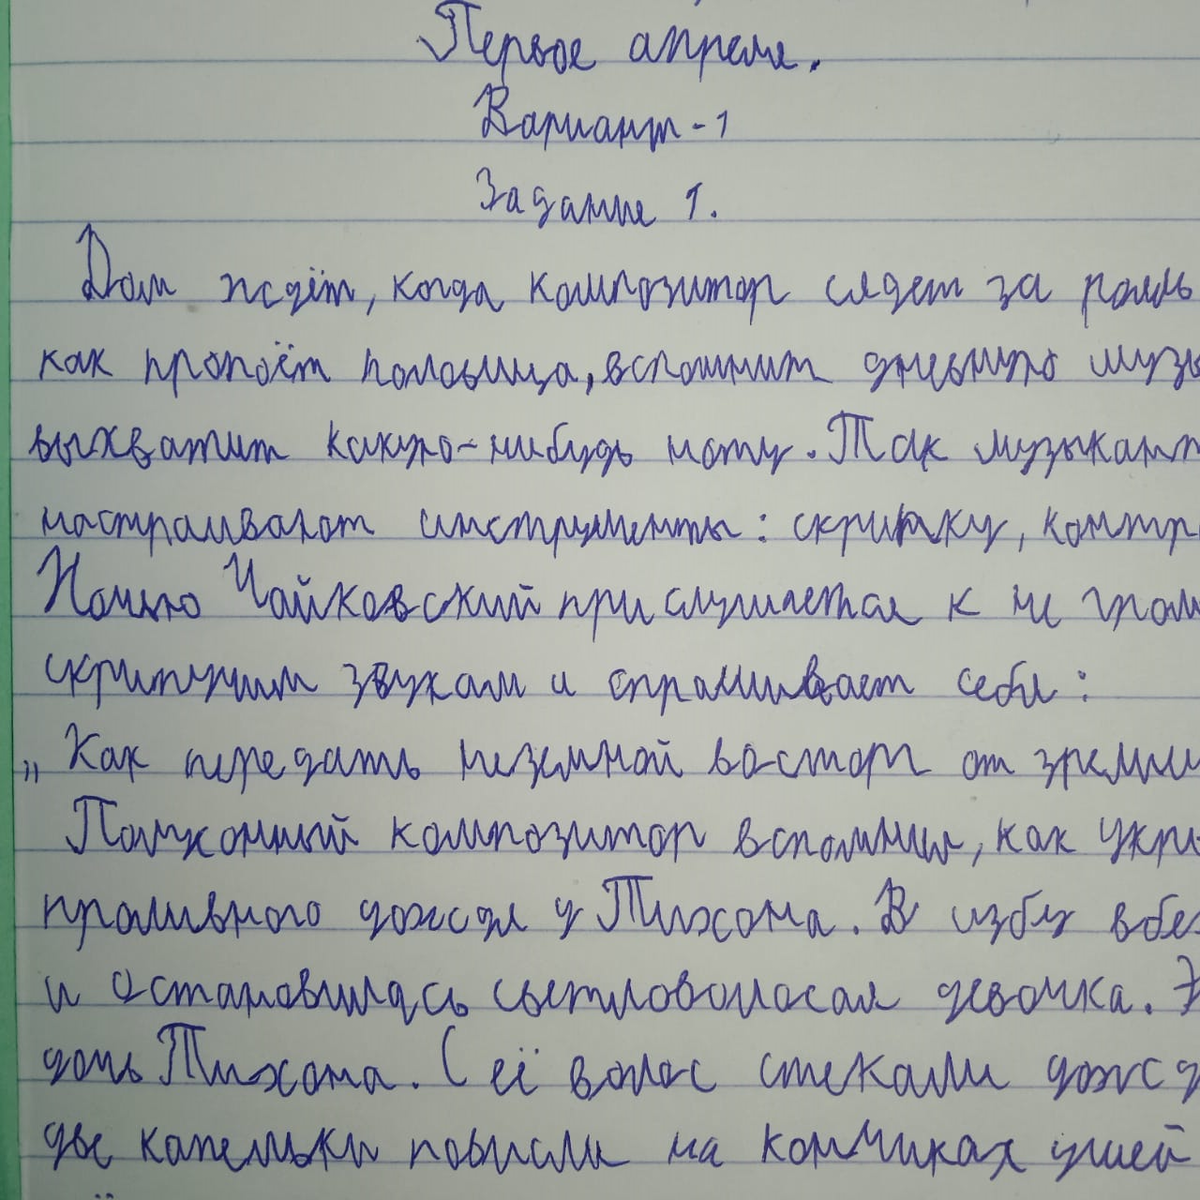 Первое апреля.
Вариант-1
Задание 1.
Дом ждёт, когда композитор сядет за рояль
как пропоёт половица, вспомнит дневную музы
выхватит какую-нибудь ноту. Так музыкант
настраивают инструменты: скрипку, контр
Ночью Чайковский прислушается к не гром
скрипучим звукам и спрашивает себя:
„Как передать неземной восторг от зрелищ
Полусонный композитор вспомнил, как укры
проливного дождя у Тихона. В избу вбе
и остановилась светловолосая девочка. Э
дочь Тихона. С её волос стекали дожд
две капельки повисли на кончиках ушей